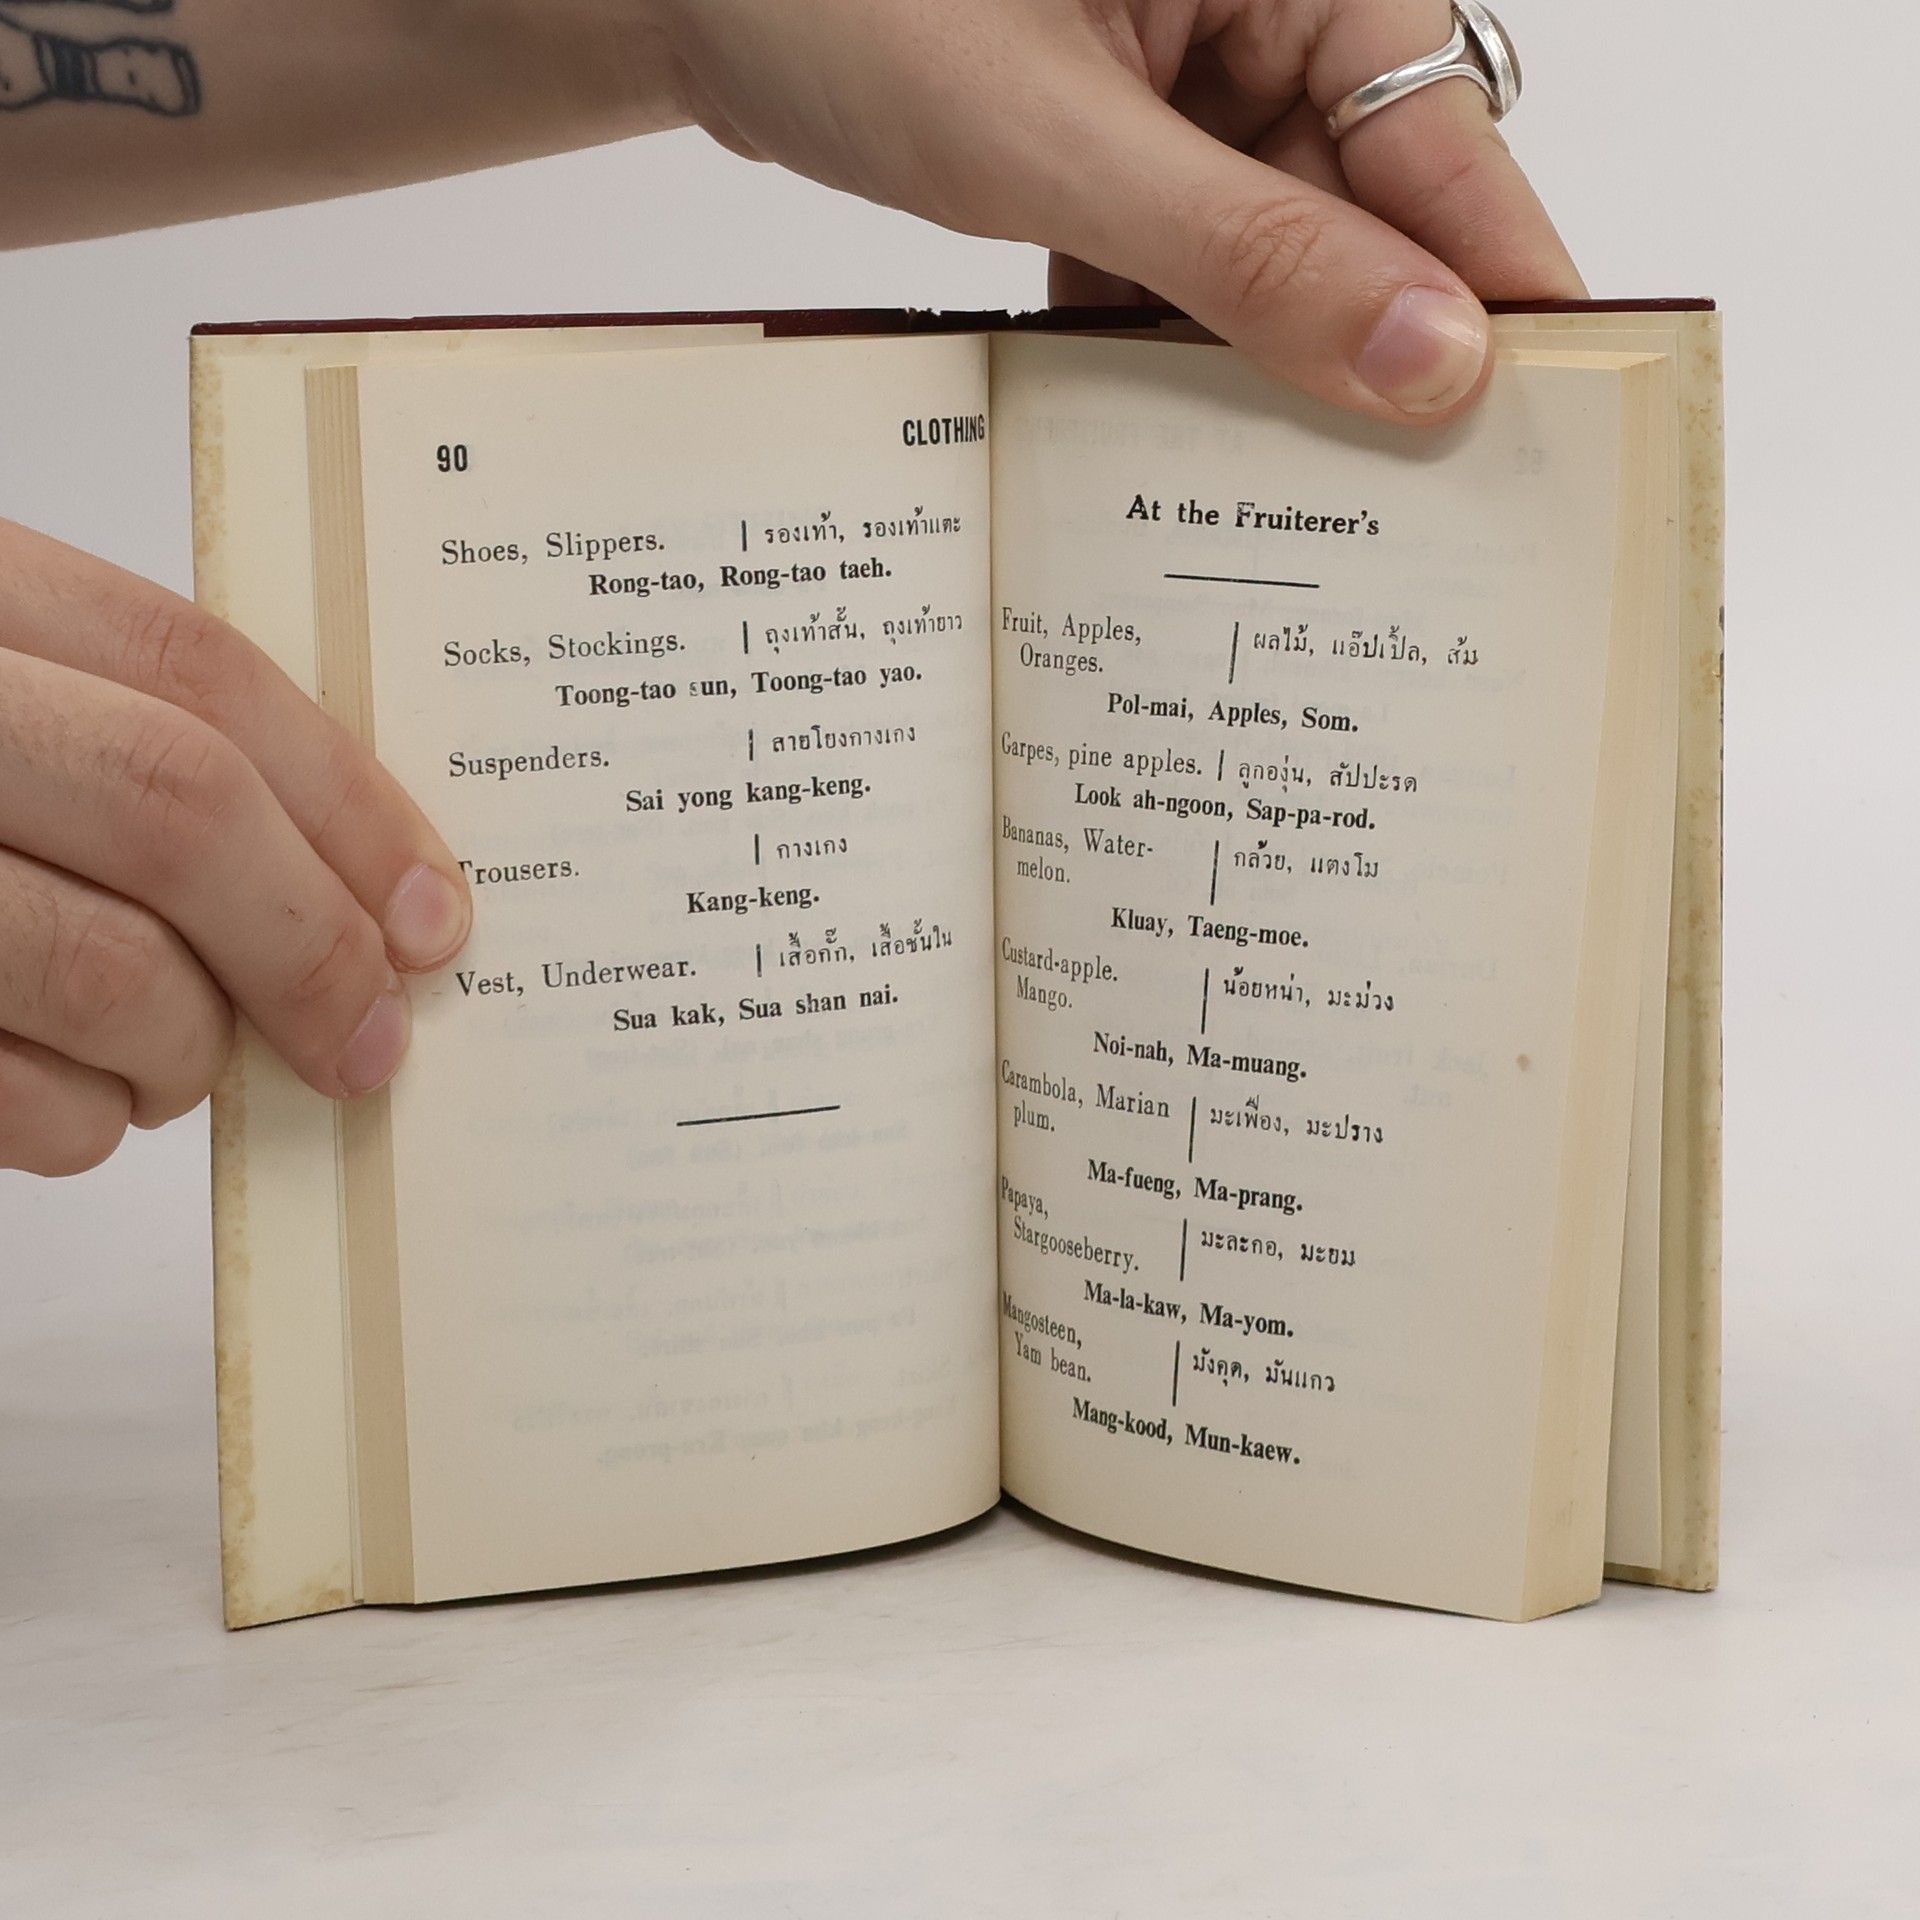 90
CLOTHING
Shoes, Slippers. | รองเท้า, รองเท้าแตะ
Rong-tao, Rong-tao taeh.
Socks, Stockings. | ถุงเท้าสั้น, ถุงเท้ายาว
Toong-tao sun, Toong-tao yao.
Suspenders. | สายโยงกางเกง
Sai yong kang-keng.
Trousers. | กางเกง
Kang-keng.
Vest, Underwear. | เสื้อกั๊ก, เสื้อชั้นใน
Sua kak, Sua shan nai.
At the Fruiterer's
Fruit, Apples, | ผลไม้, แอ๊ปเปิ้ล, ส้ม
Oranges.
Pol-mai, Apples, Som.
Garpes, pine apples. | ลูกองุ่น, สัปปะรด
Look ah-ngoon, Sap-pa-rod.
Bananas, Water- | กล้วย, แตงโม
melon.
Kluay, Taeng-moe.
Custard-apple. | น้อยหน่า, มะม่วง
Mango.
Noi-nah, Ma-muang.
Carambola, Marian | มะเฟือง, มะปราง
plum.
Ma-fueng, Ma-prang.
Papaya, | มะละกอ, มะยม
Stargooseberry.
Ma-la-kaw, Ma-yom.
Mangosteen, | มังคุด, มันแกว
Yam bean.
Mang-kood, Mun-kaew.